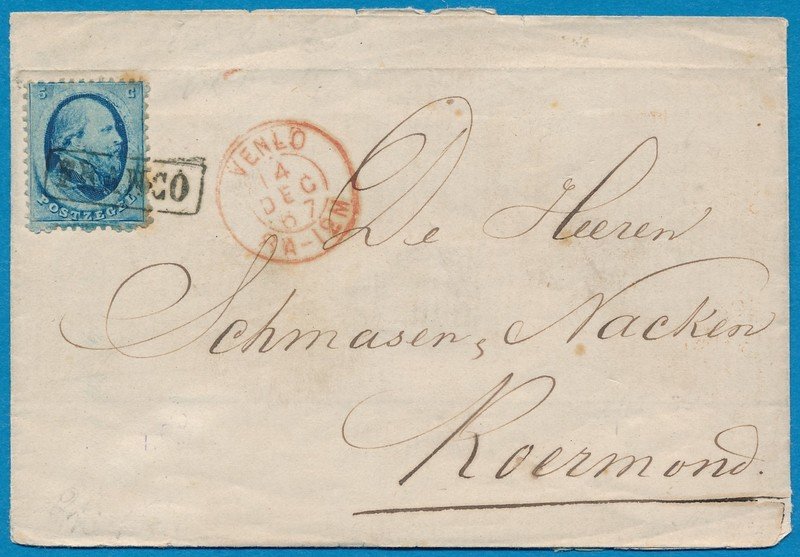 5 C
POSTZEGEL
FRANCO
VENLO
4
DEC
67
8M-12M
De Heeren
Schmasen, Nacken
Roermond.